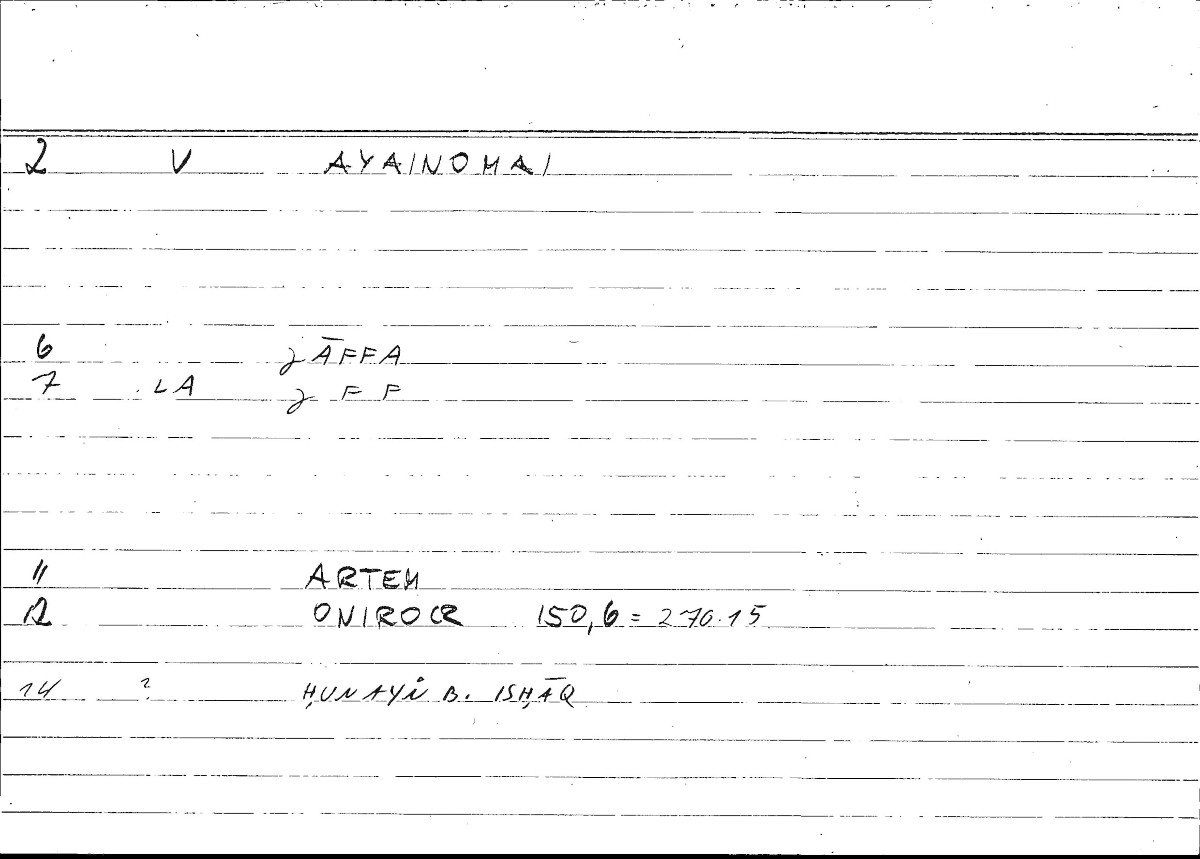 2 V ΑΥΑΙΝΟΜΑΙ
6 JĀFFA
7 LA J F F
11 ARTEM
12 ONIROCR 150,6 = 270.15
14 ? ḤUNAYN B. ISḤĀQ